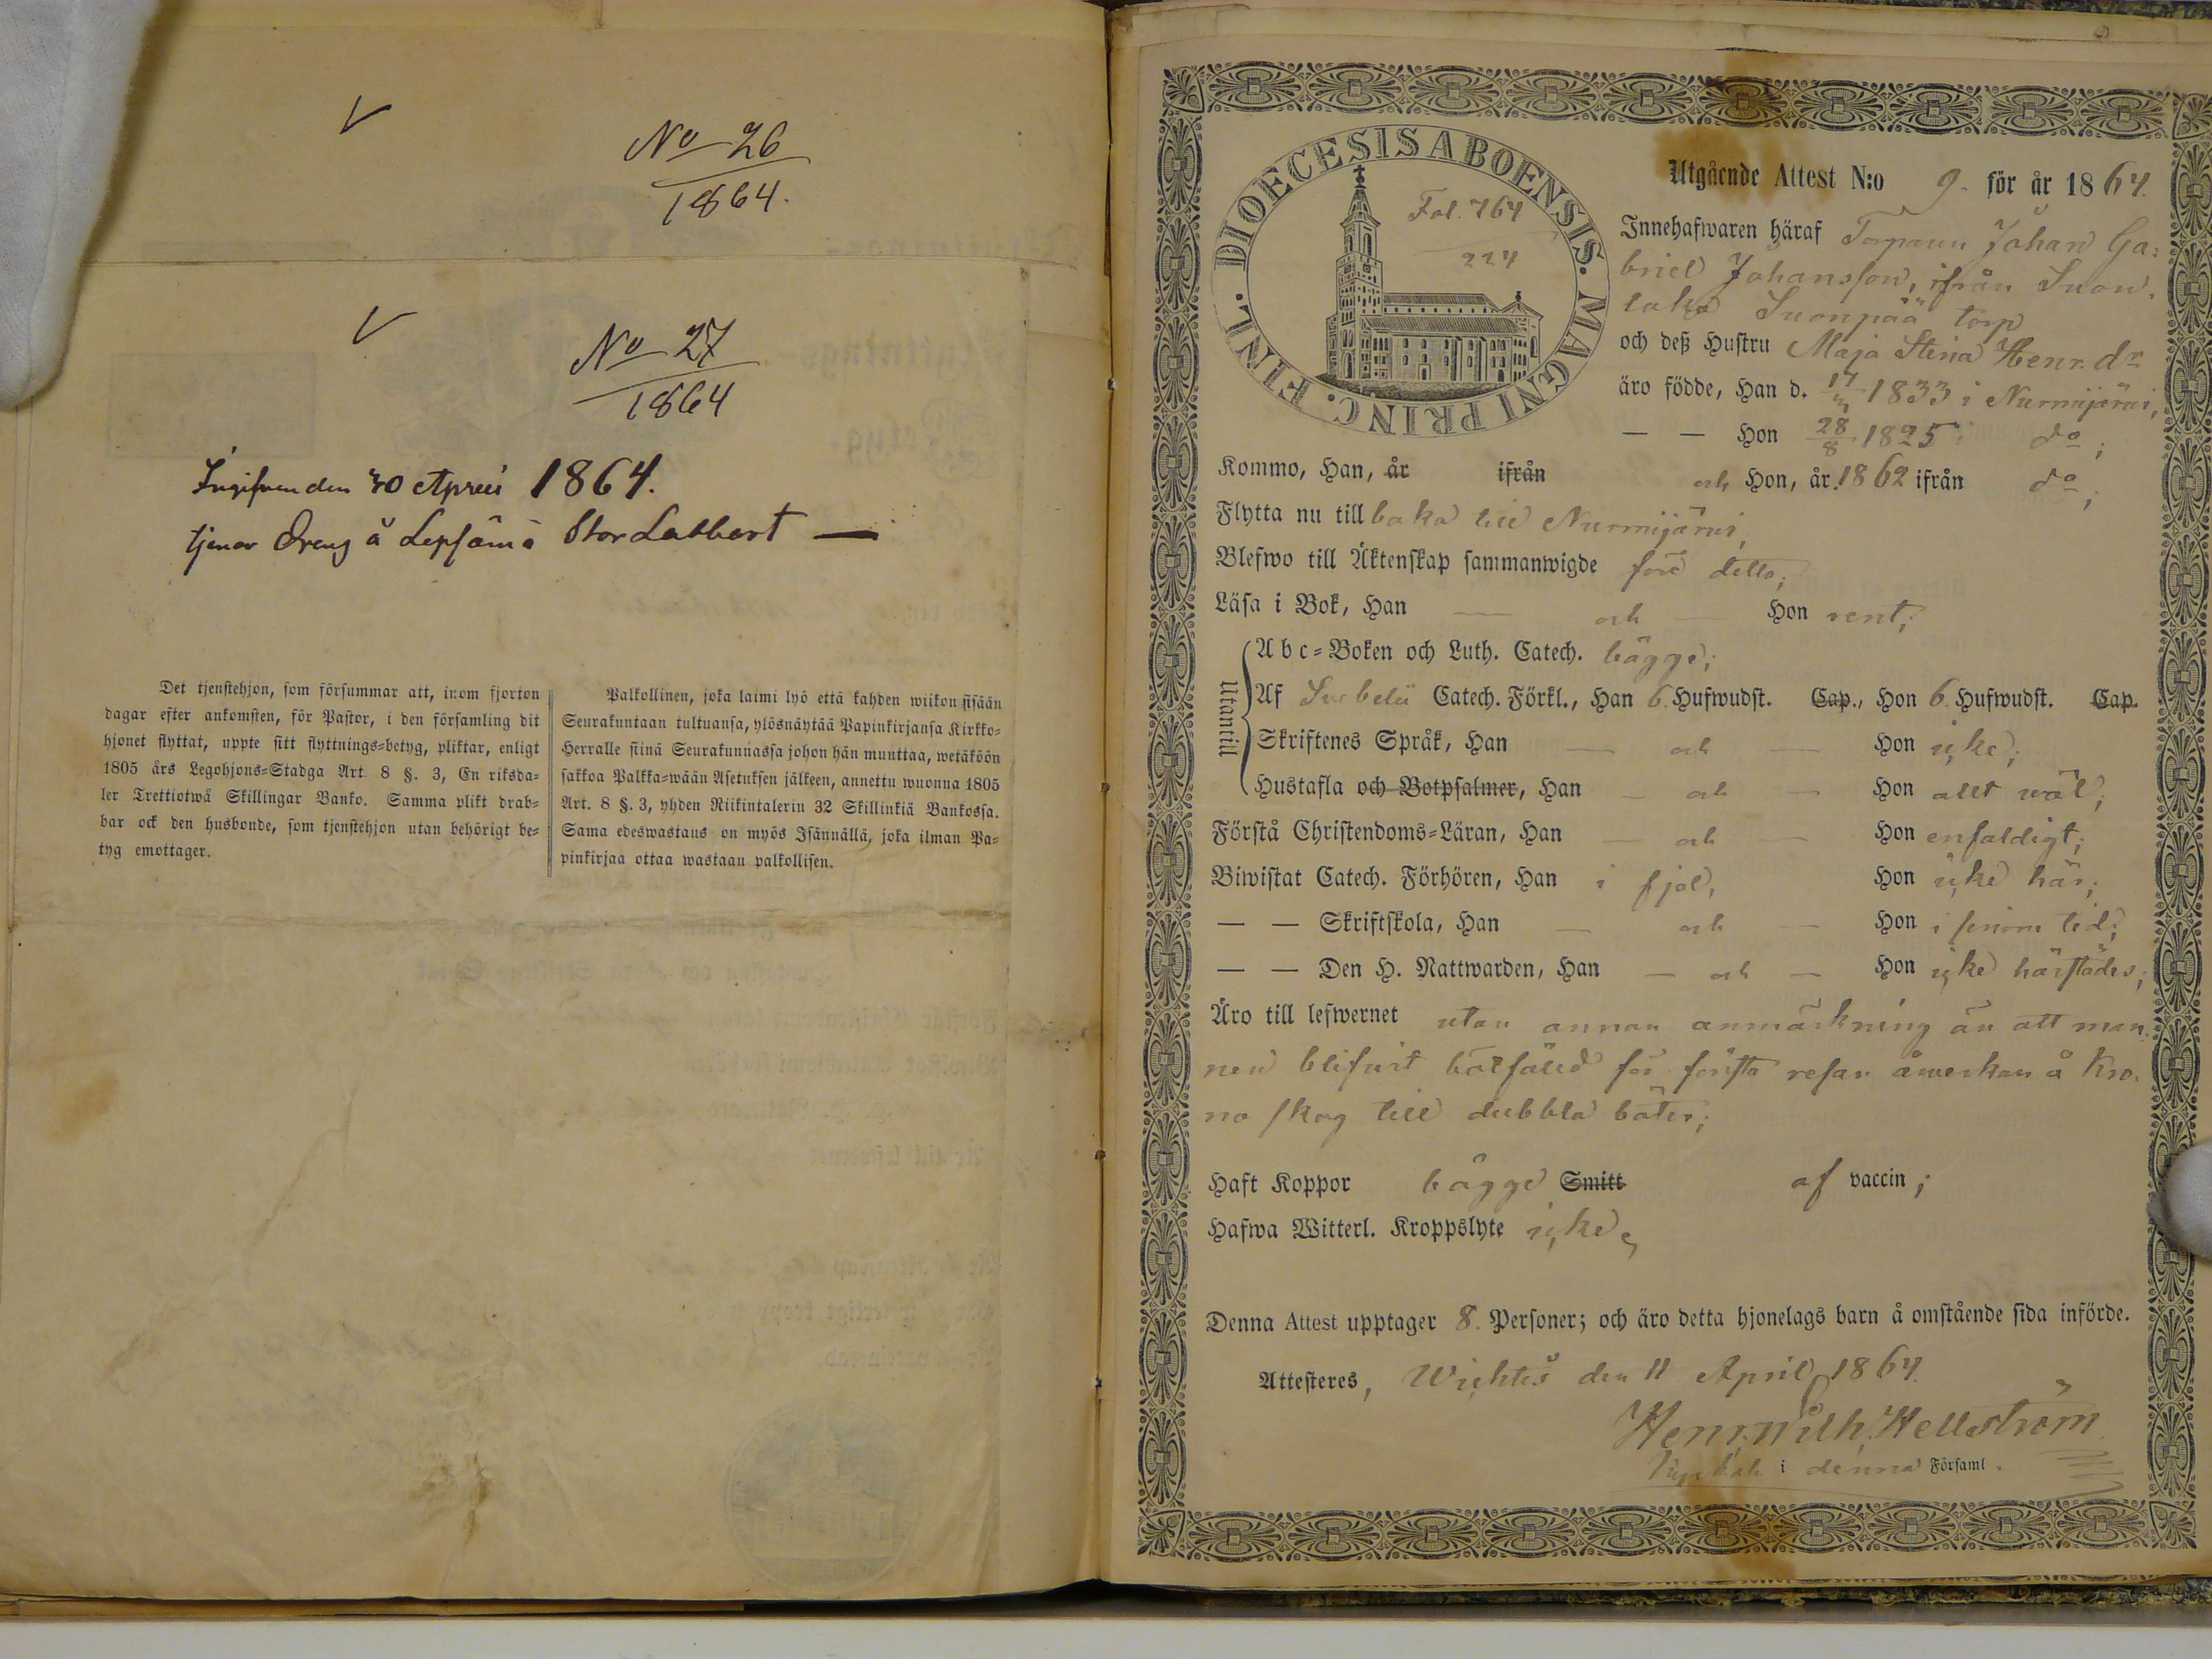 No 26
1864.
No 27
1864
Ingifven den 30 April 1864.
tjenar Dreng å Lepsämä Stor Labbart —
Det tjenstehjon, som försummar att, inom fjorton
dagar efter ankomsten, för Pastor, i den församling dit
hjonet flyttat, uppte sitt flyttnings-betyg, pliktar, enligt
1805 års Legohjons-Stadga Art. 8 §. 3, En riksda-
ler Trettiotwå Skillingar Banko. Samma plikt drab-
bar ock den husbonde, som tjenstehjon utan behörigt be-
tyg emottager.
Palkollinen, joka laimi lyö että kahden wiikon sisään
Seurakuntaan tultuansa, ylösnäytää Papinkirjansa Kirkko-
Herralle siinä Seurakunnassa johon hän muuttaa, wetäköön
sakkoa Palkka-wään Asetuksen jälkeen, annettu wuonna 1805
Art. 8 §. 3, yhden Riikintalerin 32 Skillinkiä Bankossa.
Sama edeswastaus on myös Isännällä, joka ilman Pa-
pinkirjaa ottaa wastaan palkollisen.
DIOECESIS ABOENSIS. MAGNI PRINC. FINL.
Fol. 764
224
Utgående Attest N:o 9. för år 1864.
Innehafwaren häraf Torparen Johan Ga-
briel Johansson, ifrån Suon-
taka Suonpää torp
och deß Hustru Maja Stina Henr. dr
äro födde, Han d. 17 1833 i Nurmijärvi,
— — Hon 28/8 1825 do;
Kommo, Han, år ifrån och Hon, år 1862 ifrån do;
Flytta nu till baka till Nurmijärvi,
Blefwo till Äktenskap sammanwigde före detta;
Läsa i Bok, Han — och — Hon rent;
Utantill
Abc-Boken och Luth. Catech. bägge;
Af Svebelii Catech. Förkl., Han 6 Hufwudst. Cap., Hon 6 Hufwudst. Cap.
Skriftenes Språk, Han — och — Hon icke;
Hustafla och Botpsalmer, Han — och — Hon allt wäl;
Förstå Christendoms-Läran, Han — och — Hon enfaldigt;
Biwistat Catech. Förhören, Han i fjol, Hon icke här;
— — Skriftskola, Han — och — Hon i sinom tid;
— — Den H. Nattwarden, Han — och — Hon icke härstädes;
Äro till lefwernet utan annan anmärkning än att man-
nen blifvit botfälld för första resan åwerkan å Kro-
no skog till dubbla böter;
Haft Koppor bägge Smitt af vaccin;
Hafwa Witterl. Kroppslyte icke,
Denna Attest upptager 8. Personer; och äro detta hjonelags barn å omstående sida införde.
Attesteres, Wichtis den 11 April 1864.
Henr. Wilh. Hellström
i denna Församl.